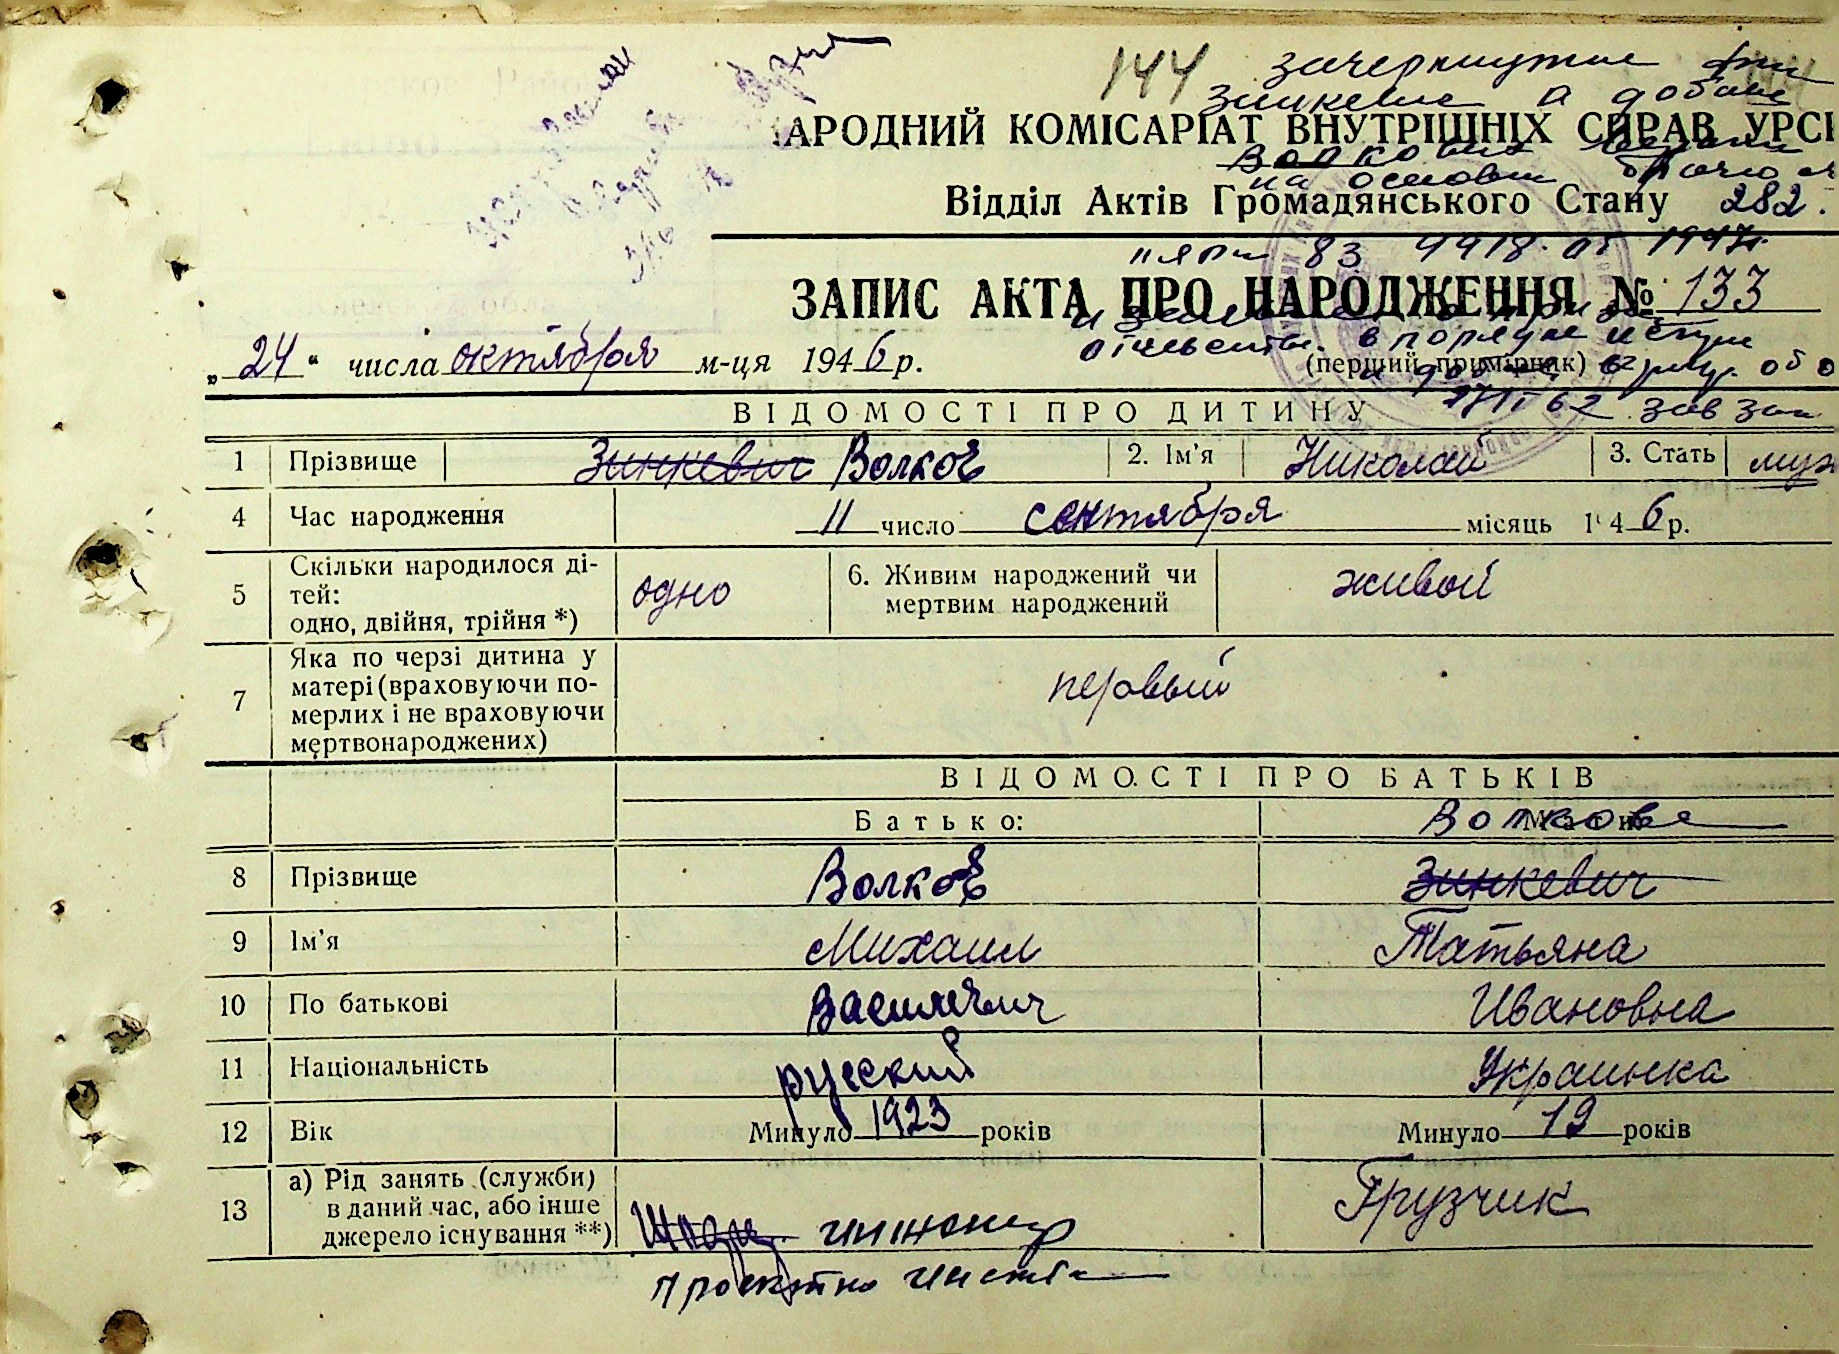 144 зачеркнутые
а добав
АРОДНИЙ КОМІСАРІАТ ВНУТРІШНІХ СПРАВ УРС
на основан
Відділ Актів Громадянського Стану 282.
83 1947г.
ЗАПИС АКТА ПРО НАРОДЖЕННЯ № 133
„24“ числа октября м-ця 1946 р. (перший примірник)
в порядке
ВІДОМОСТІ ПРО ДИТИНУ
62 зав
1 Прізвище Зинкевич Волков 2. Ім'я Николай 3. Стать муж
4 Час народження 11 число сентября місяць 1946 р.
5 Скільки народилося ді-
тей:
одно, двійня, трійня *) одно 6. Живим народжений чи
мертвим народжений живой
7 Яка по черзі дитина у
матері (враховуючи по-
мерлих і не враховуючи
мертвонароджених) первый
ВІДОМОСТІ ПРО БАТЬКІВ
Батько: Мати: Волкова
8 Прізвище Волков Зинкевич
9 Ім'я Михаил Татьяна
10 По батькові Васильевич Ивановна
11 Національність русский Украинка
12 Вік Минуло 1923 років Минуло 19 років
13 а) Рід занять (служби)
в даний час, або інше
джерело існування **) инженер Грузчик